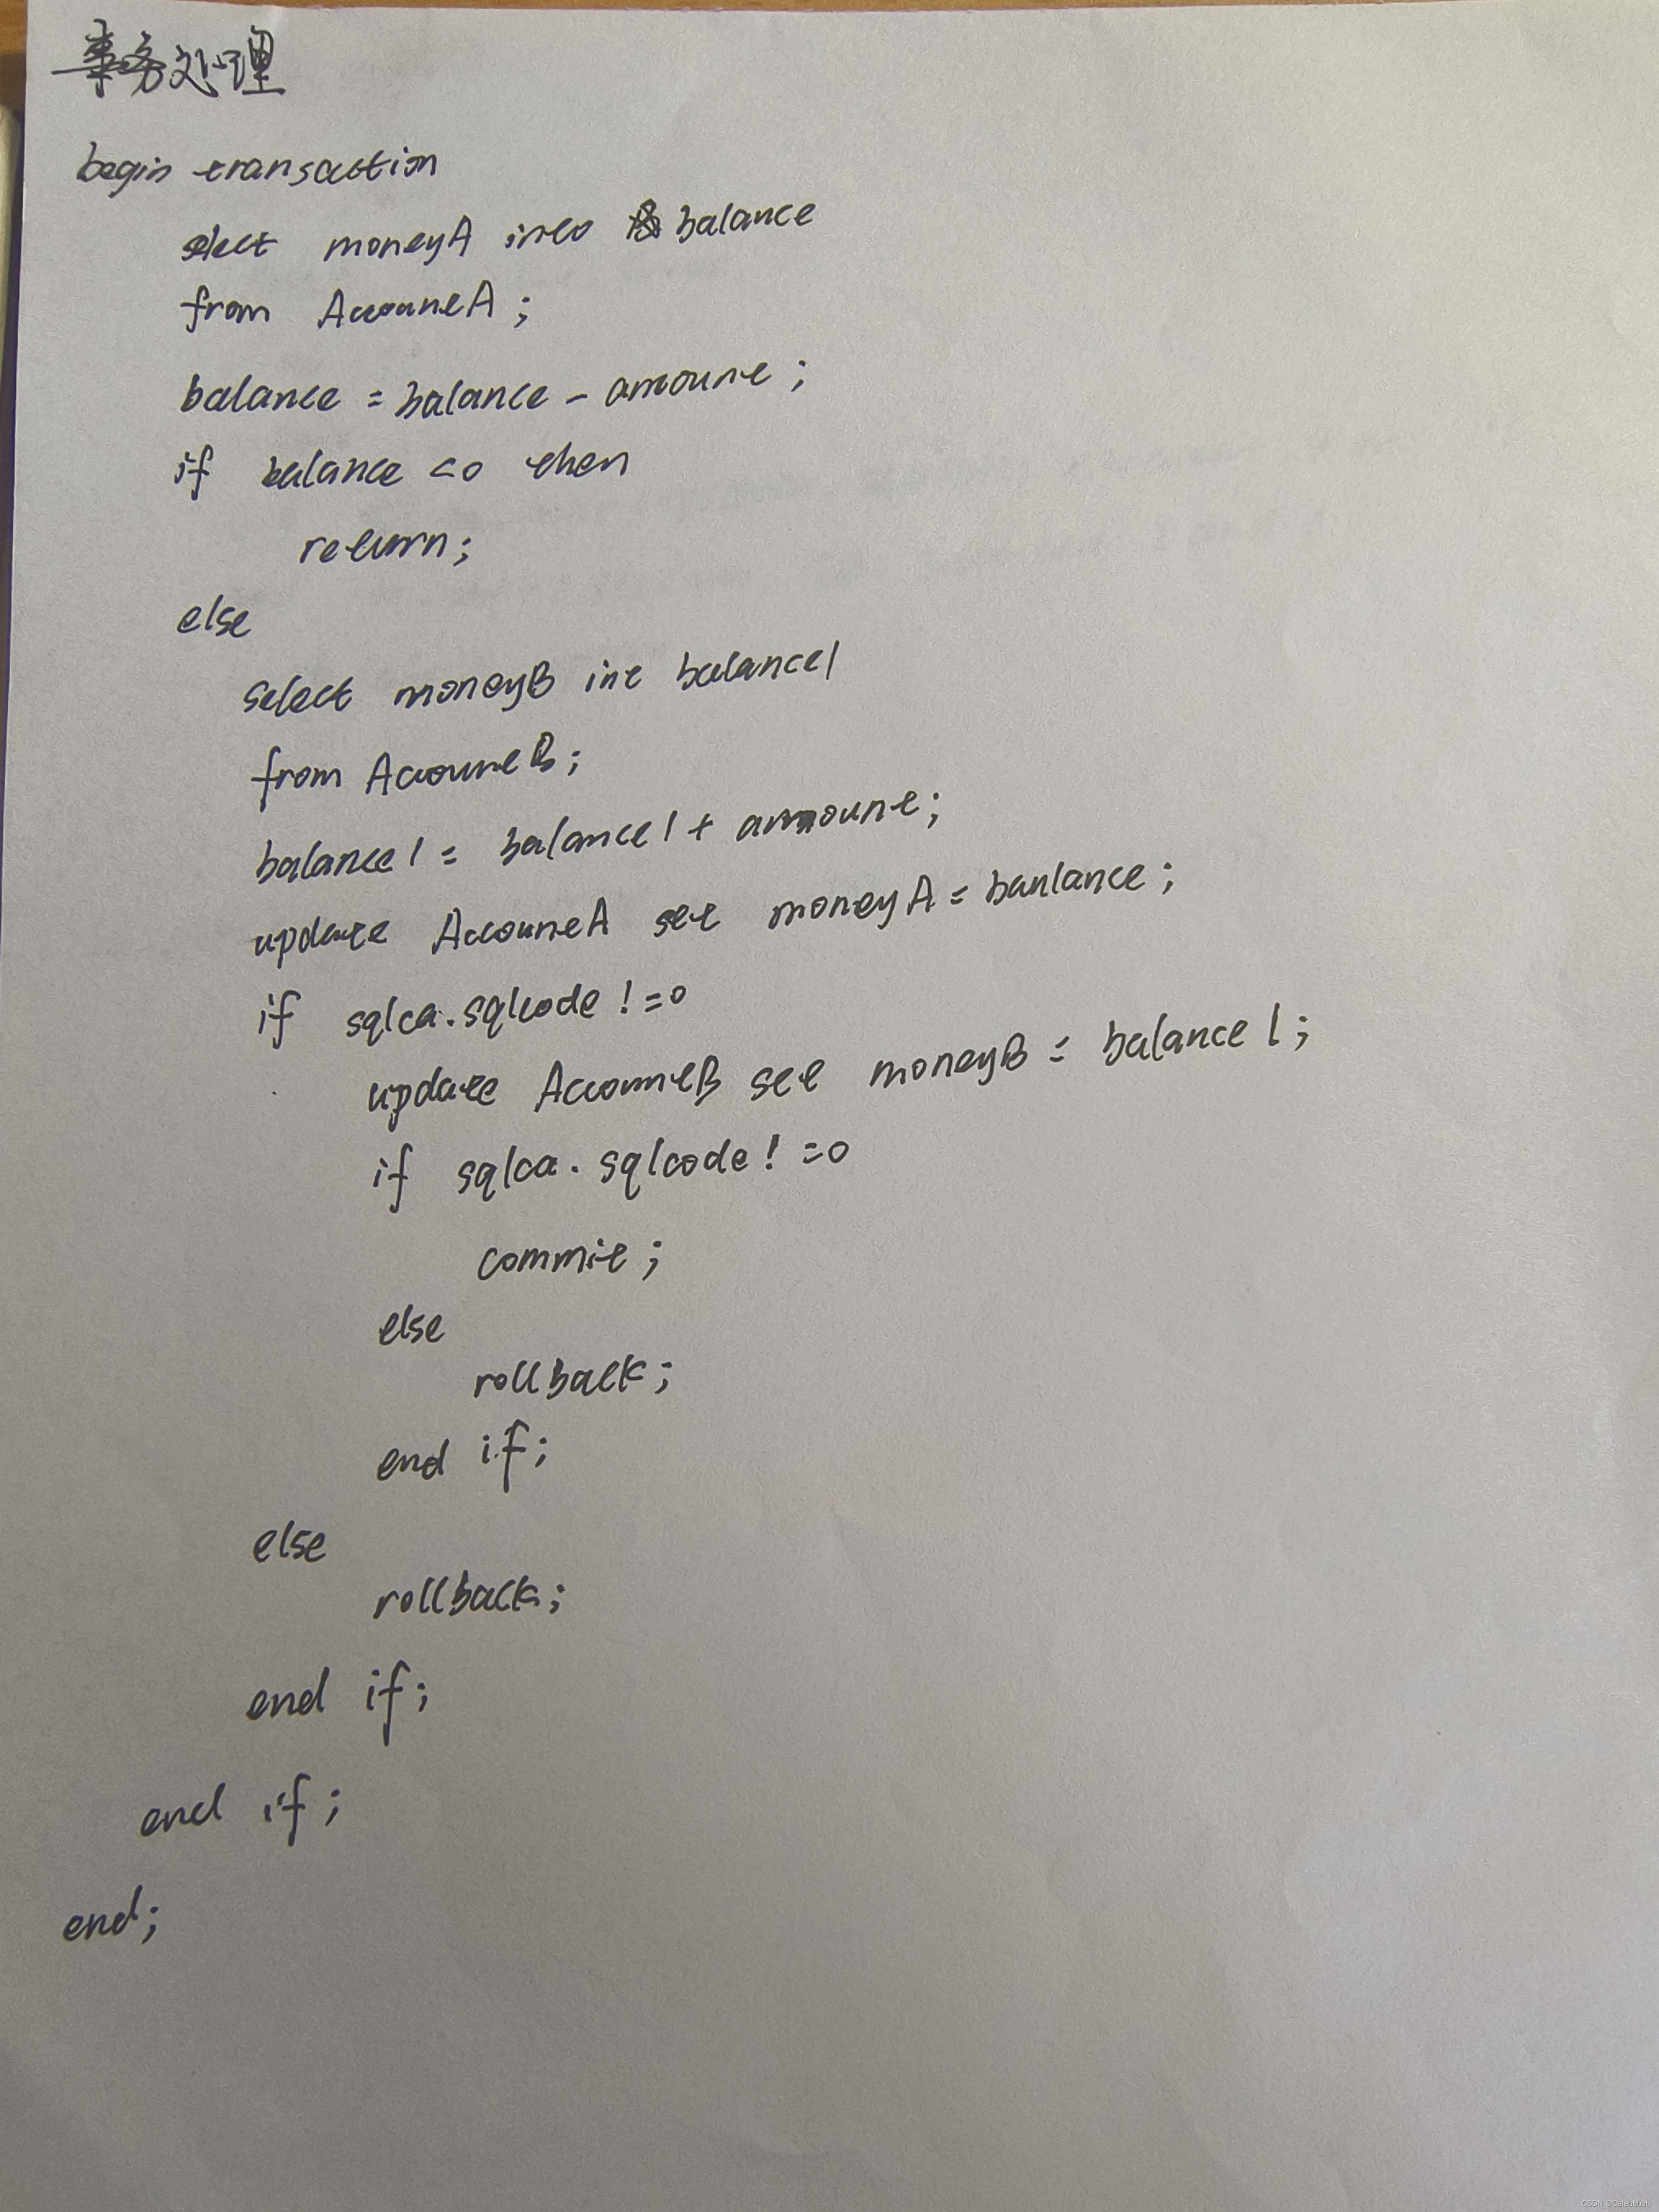 事务处理
begin transaction
select moneyA into balance
from AccountA;
balance = balance - amount;
if balance <0 then
return;
else
select moneyB int balance1
from AccountB;
balance1 = balance1 + amount;
update AccountA set moneyA = banlance;
if sqlca.sqlcode !=0
update AccountB set moneyB = balance1;
if sqlca.sqlcode !=0
commit;
else
rollback;
end if;
else
rollback;
end if;
end if;
end;